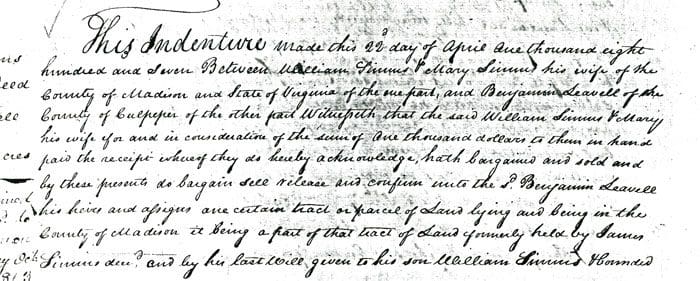 This Indenture made this 22d day of April One thousand eight
hundred and Seven Between William Simms & Mary Simms his wife of the
County of Madison and State of Virginia of the one part, and Benjamin Leavell of the
County of Culpeper of the other part Witnesseth that the said William Simms & Mary
his wife for and in consideration of the sum of One thousand dollars to them in hand
paid the receipt whereof they do hereby acknowledge, hath bargained and sold and
by these presents do bargain sell release and confirm unto the sd. Benjamin Leavell
his heirs and assigns one certain tract or parcel of Land lying and being in the
County of Madison it being a part of that tract of Land formerly held by James
Simms decd. and by his last Will given to his son William Simms & bounded
eed
cres